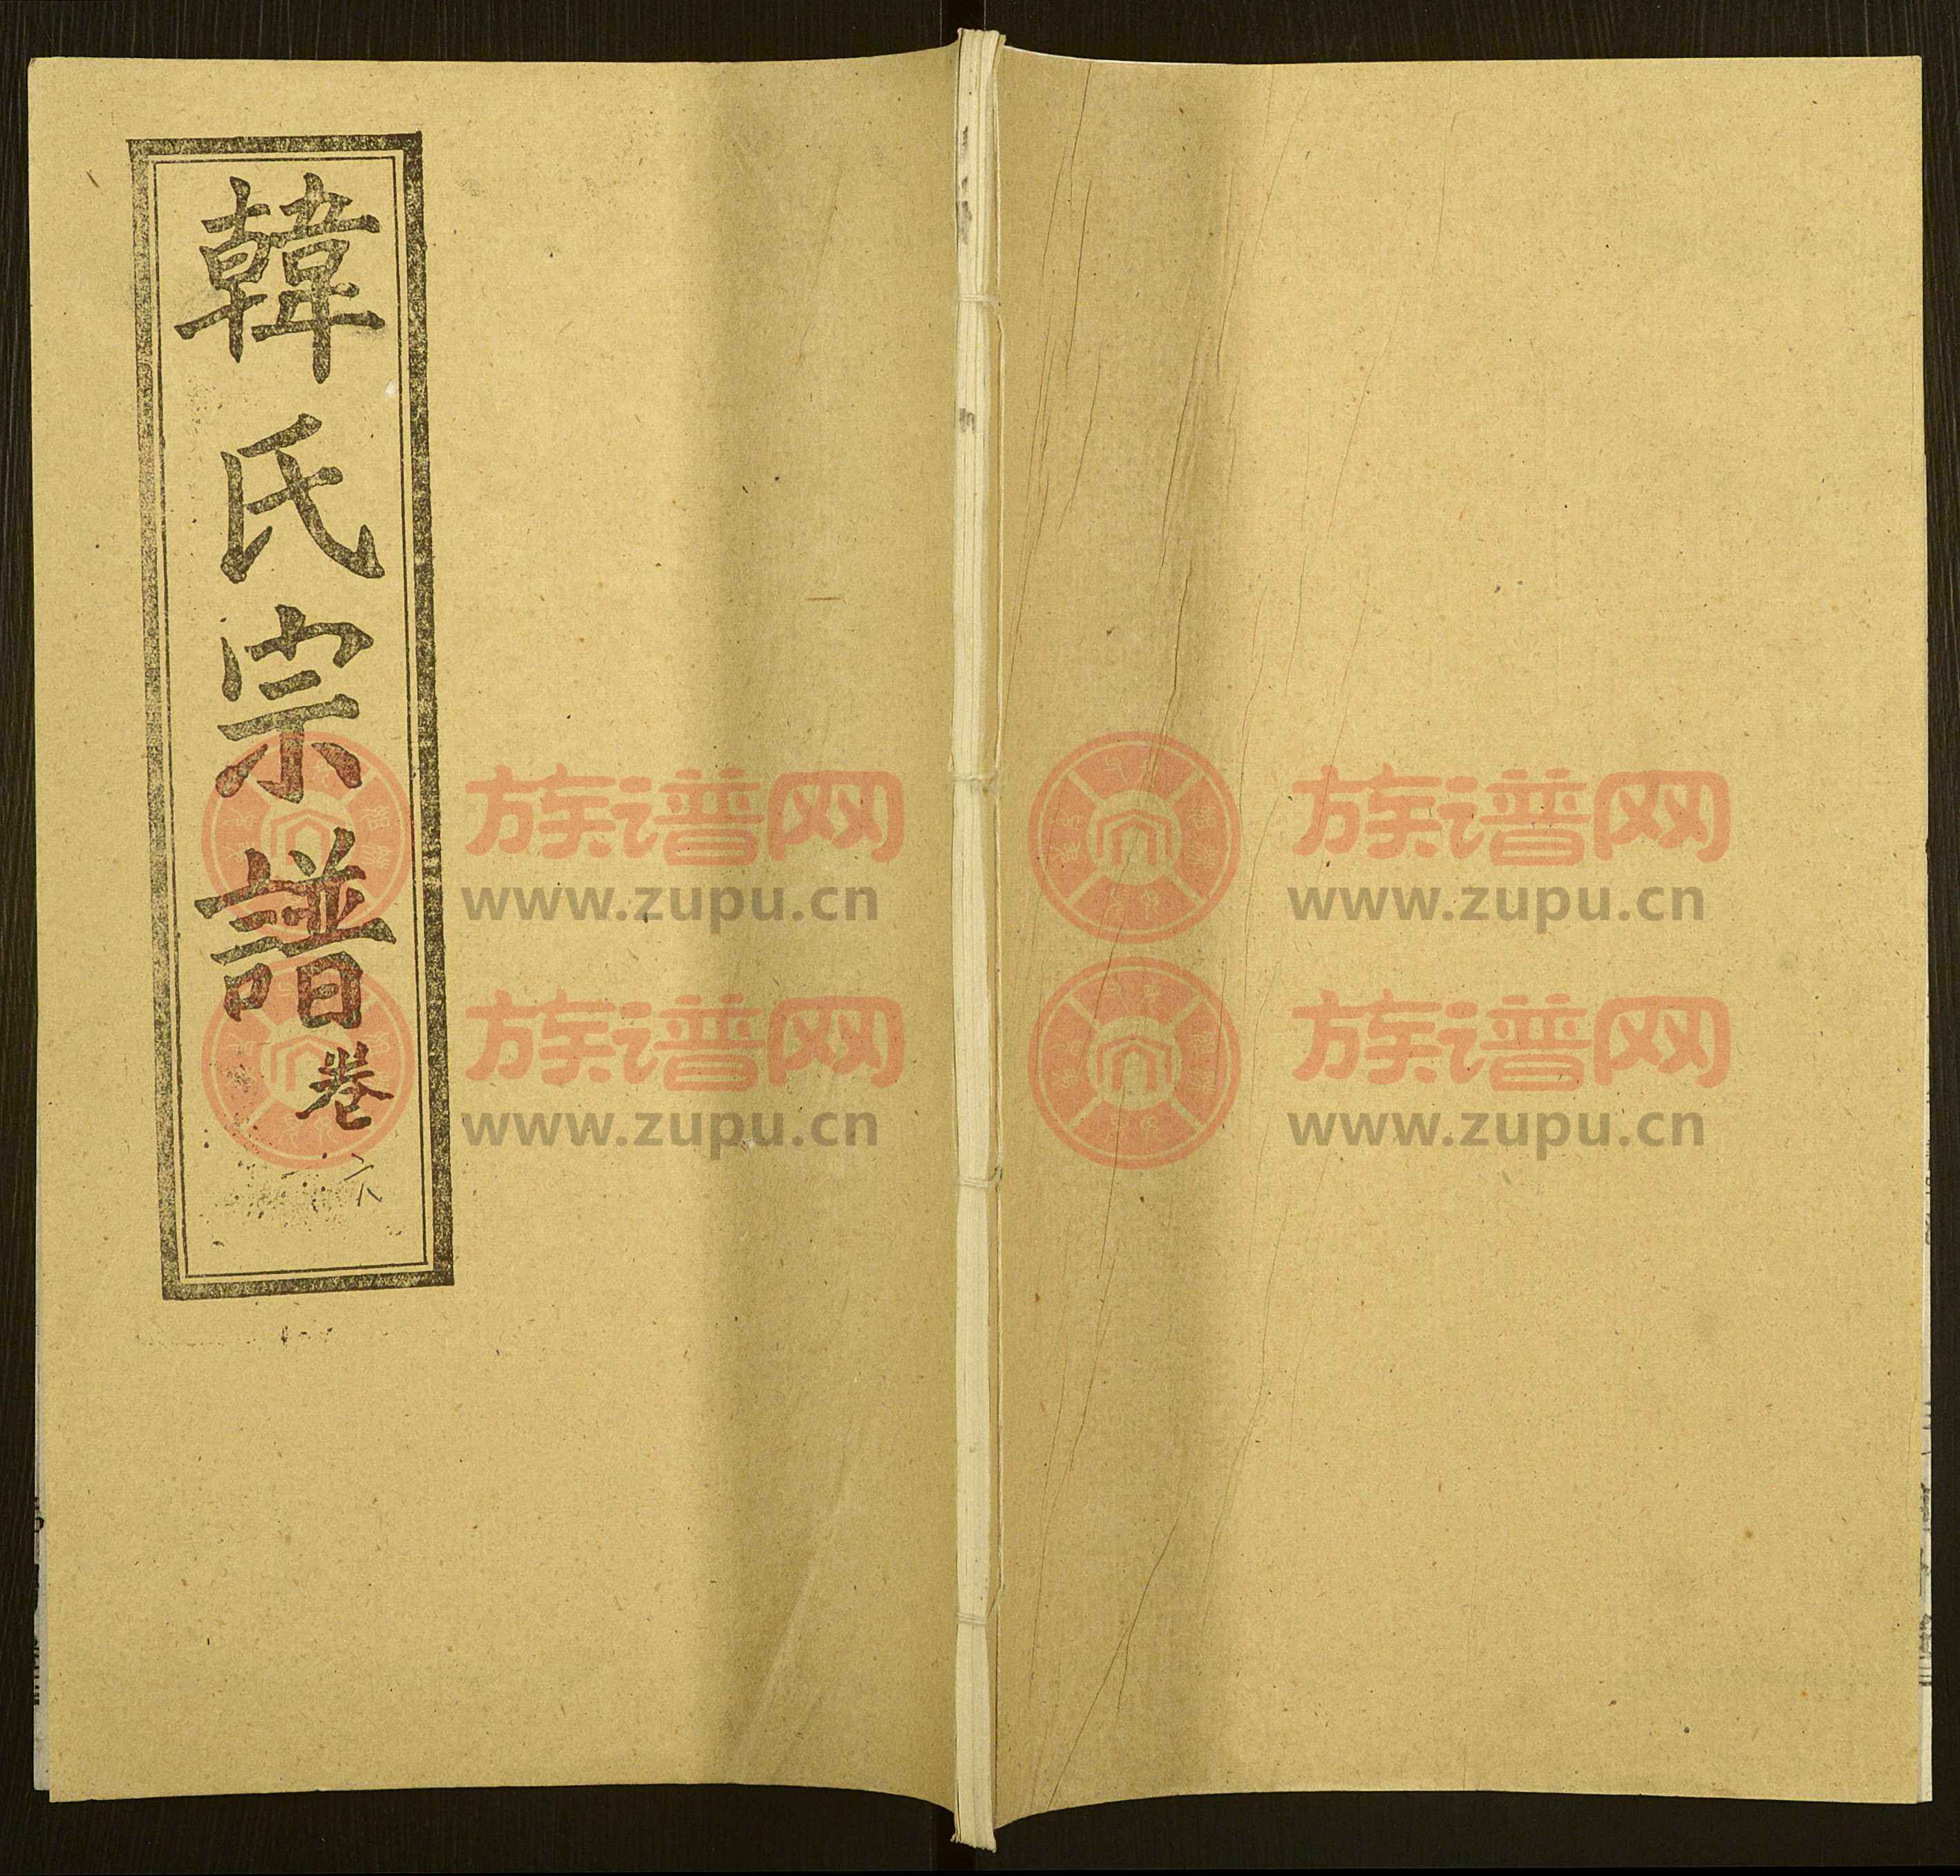 韓氏宗譜
卷六
族谱网
www.zupu.cn
族谱网
www.zupu.cn
族谱网
www.zupu.cn
族谱网
www.zupu.cn